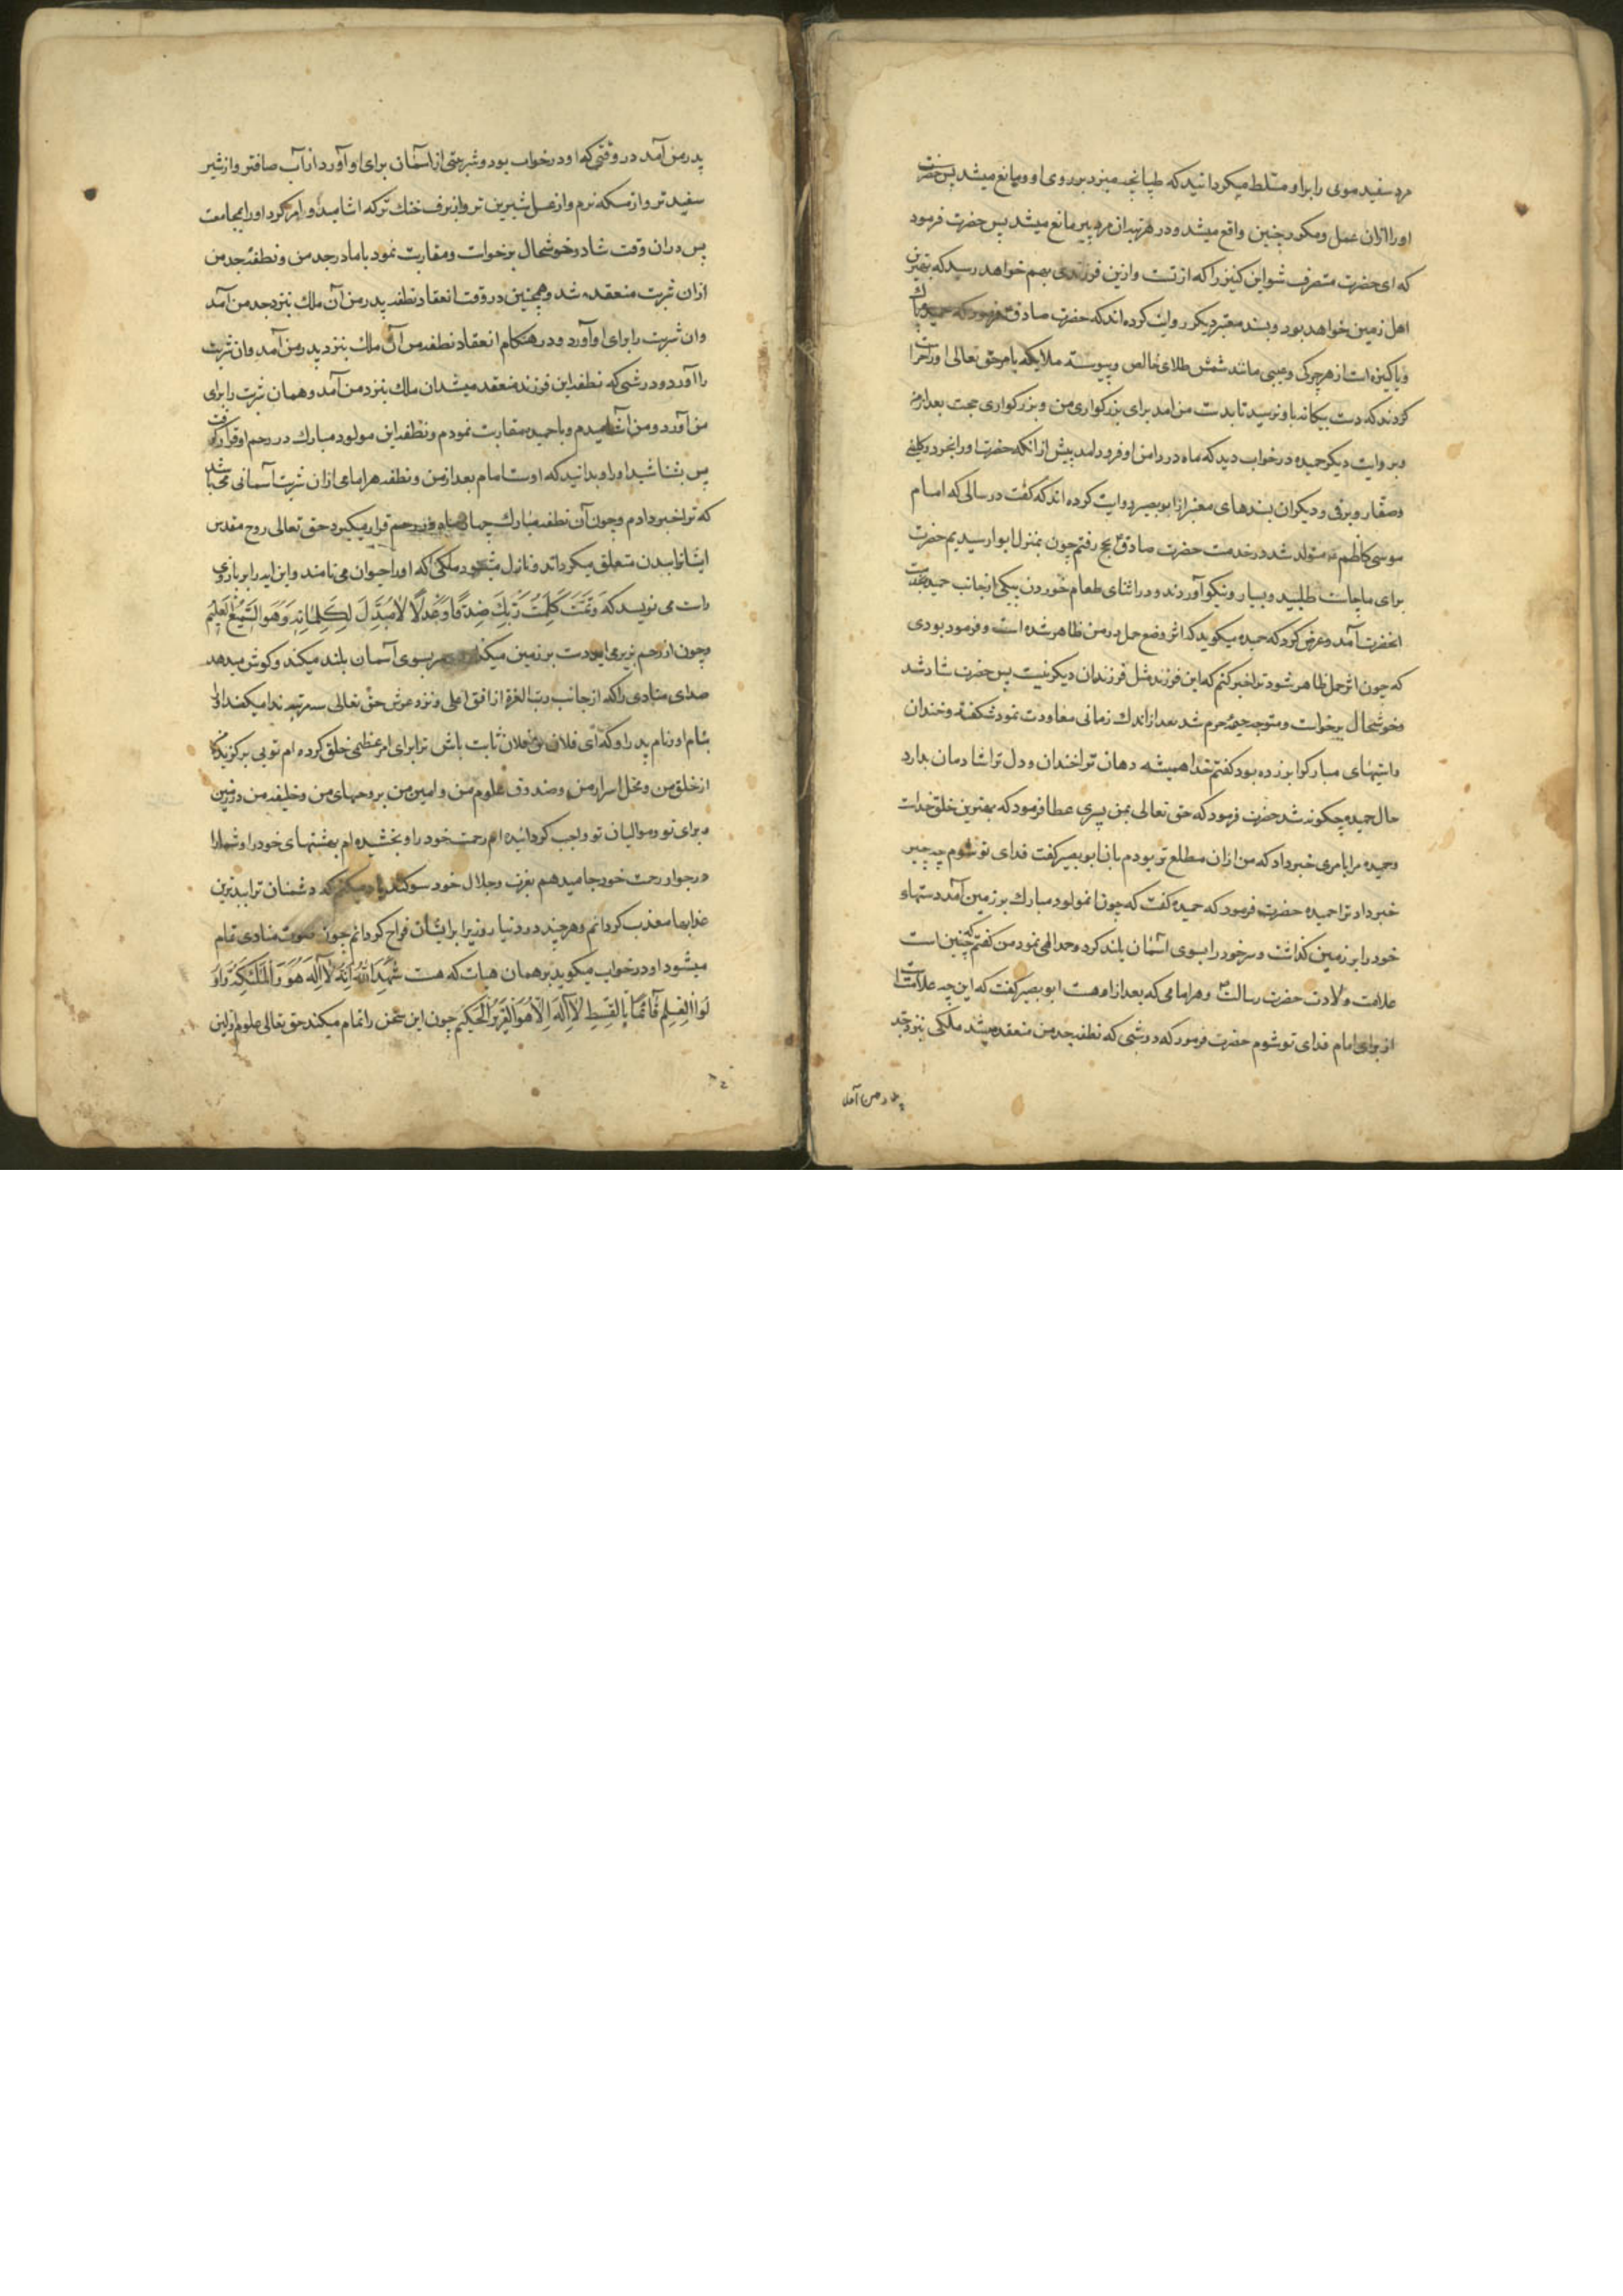 مرد سفید موی را بر او مسلط میکردانید که طپانچه میزد بر روی او و مانع میشد پس حضرت
او را ازان عمل و مکرر چنین واقع میشد و در هر مرتبه ان مرد پیر مانع میشد پس حضرت فرمود
که ای حضرت متصرف شو این کنیز را که از تست و ازین فرزندی بهم خواهد رسید که بهترین
اهل زمین خواهد بود و بسند معتبر دیکر روایت کرده اند که حضرت صادق فرمود که حمیده پاک
و پاکیزه است از هر چرکی و عیبی مانند شمش طلای خالص و پیوسته ملایکه بامر حق تعالی او را حراست
کردند که دست بیکانه باو نرسید تا بدست من امد برای بزرکواری من و بزرکواری حجت بعد از من
و بروایت دیکر حمیده در خواب دید که ماه در دامن او فرود امد پیش از انکه حضرت او را بخرد و کلینی
و صفار و برقی و دیکران بسندهای معتبر از ابو بصیر روایت کرده اند که کفت در سالی که امام
موسی کاظم ع متولد شد در خدمت حضرت صادق ع بحج رفتم چون بمنزل ابوا رسیدیم حضرت
برای ما چاشت طلبید و بسیار و نیکو آوردند و در اثنای طعام خوردن پیکی از جانب حمیده بخدمت
انحضرت آمد و عرض کرد که حمیده میکوید که اثر وضع حمل در من ظاهر شده است و فرمود بودی
که چون اثر حمل ظاهر شود ترا خبر کنم که این فرزند مثل فرزندان دیکر نیست پس حضرت شاد شد
و خوشحال برخواست و متوجه خیمه حرم شد بعد از اندک زمانی معاودت نمود شکفته و خندان
و استینهای مبارک وا برزده بود کفتم خدا همیشه دهان ترا خندان و دل ترا شادمان بدارد
حال حمیده چکونه شد حضرت فرمود که حق تعالی بمن پسری عطا فرمود که بهترین خلق خداست
و حمیده مرا بامری خبر داد که من ازان مطلع تر بودم بان ابو بصیر کفت فدای تو شوم چه چیز
خبر داد ترا حمیده حضرت فرمود که حمیده کفت که چون انمولود مبارک بر زمین آمد دستهای
خود را بر زمین کذاشت و سر خود را بسوی اسمان بلند کرد و حمد الهی نمود من کفتم که چنین است
علامت ولادت حضرت رسالت ص و هر امامی که بعد از او هست ابو بصیر کفت که این چه علامت است
از برای امام فدای تو شوم حضرت فرمود که در شبی که نطفه جد من منعقد میشد ملکی بنزد جد
پدر من آمد
پدر من آمد در وقتی که او در خواب بود و شربتی از اسمان برای او آورد از آب صافتر و از شیر
سفید تر و از مسکه نرم و از عسل شیرین تر و از برف خنک تر که اشامید و او را امر کرد او را بمجامعت
پس در ان وقت شاد و خوشحال برخواست و مقاربت نمود با مادر جد من و نطفه جد من
ازان شربت منعقد شد و همچنین در وقت انعقاد نطفه پدر من آن ملک بنزد جد من آمد
وان شربت را برای او آورد و در هنکام انعقاد نطفه من آن ملک بنزد پدر من آمد وان شربت
را آورد و در شبی که نطفه این فرزند منعقد میشد ان ملک بنزد من آمد و همان شربت را برای
من آورد و من اشامیدم و با حمیده مقاربت نمودم و نطفه این مولود مبارک در رحم او قرار کرفت
پس بشناسید او را و بدانید که اوست امام بعد از من و نطفه هر امامی ازان شربت آسمانی میباشد
که ترا خبر دادم و چون آن نطفه مبارک چهار ماه در رحم قرار میکیرد حق تعالی روح مقدس
ایشانرا ببدن متعلق میکرداند و نازل میشود ملکی که او را حیوان می نامند و این ایه را بر بازوی
راست می نویسد که وَتَمَّتْ كَلِمَتُ رَبِّكَ صِدْقًا وَعَدْلًا لَا مُبَدِّلَ لِكَلِمَاتِهِ وَهُوَ السَّمِيعُ الْعَلِيمُ
و چون از رحم بزیر می اید دست بر زمین میکذارد و سر بسوی آسمان بلند میکند و کوش میدهد
صدای منادی را که از جانب رب العزة از افق اعلی و نزد عرش حق تعالی سه مرتبه ندا میکند او را
بنام او و نام پدر او که ای فلان بن فلان ثابت باش ترا برای امر عظیمی خلق کرده ام تویی برکزیده
از خلق من و محل اسرار من و صندوق علوم من و امین من بر وحیهای من و خلیفه من در زمین
و برای تو و موالیان تو واجب کردانیده ام رحمت خود را و بخشیده ام بهشتهای خود را و شما را
در جوار رحمت خود جا میدهم بعزت و جلال خود سوکند یاد میکنم که دشمنان ترا ببدترین
عذابها معذب کردانم و هر چند در دنیا روزی را بر ایشان فراخ کردانم چون صوت منادی تمام
میشود او در جواب میکوید بر همان هیات که هست شَهِدَ اللهُ اَنَّهُ لَا اِلَهَ هُوَ وَالْمَلَائِكَةُ وَاُو
لُوا الْعِلْمِ قَائِمًا بِالْقِسْطِ لَا اِلَهَ اِلَّا هُوَ الْعَزِيزُ الْحَكِيمُ چون این سخن را تمام میکند حق تعالی علوم اولین